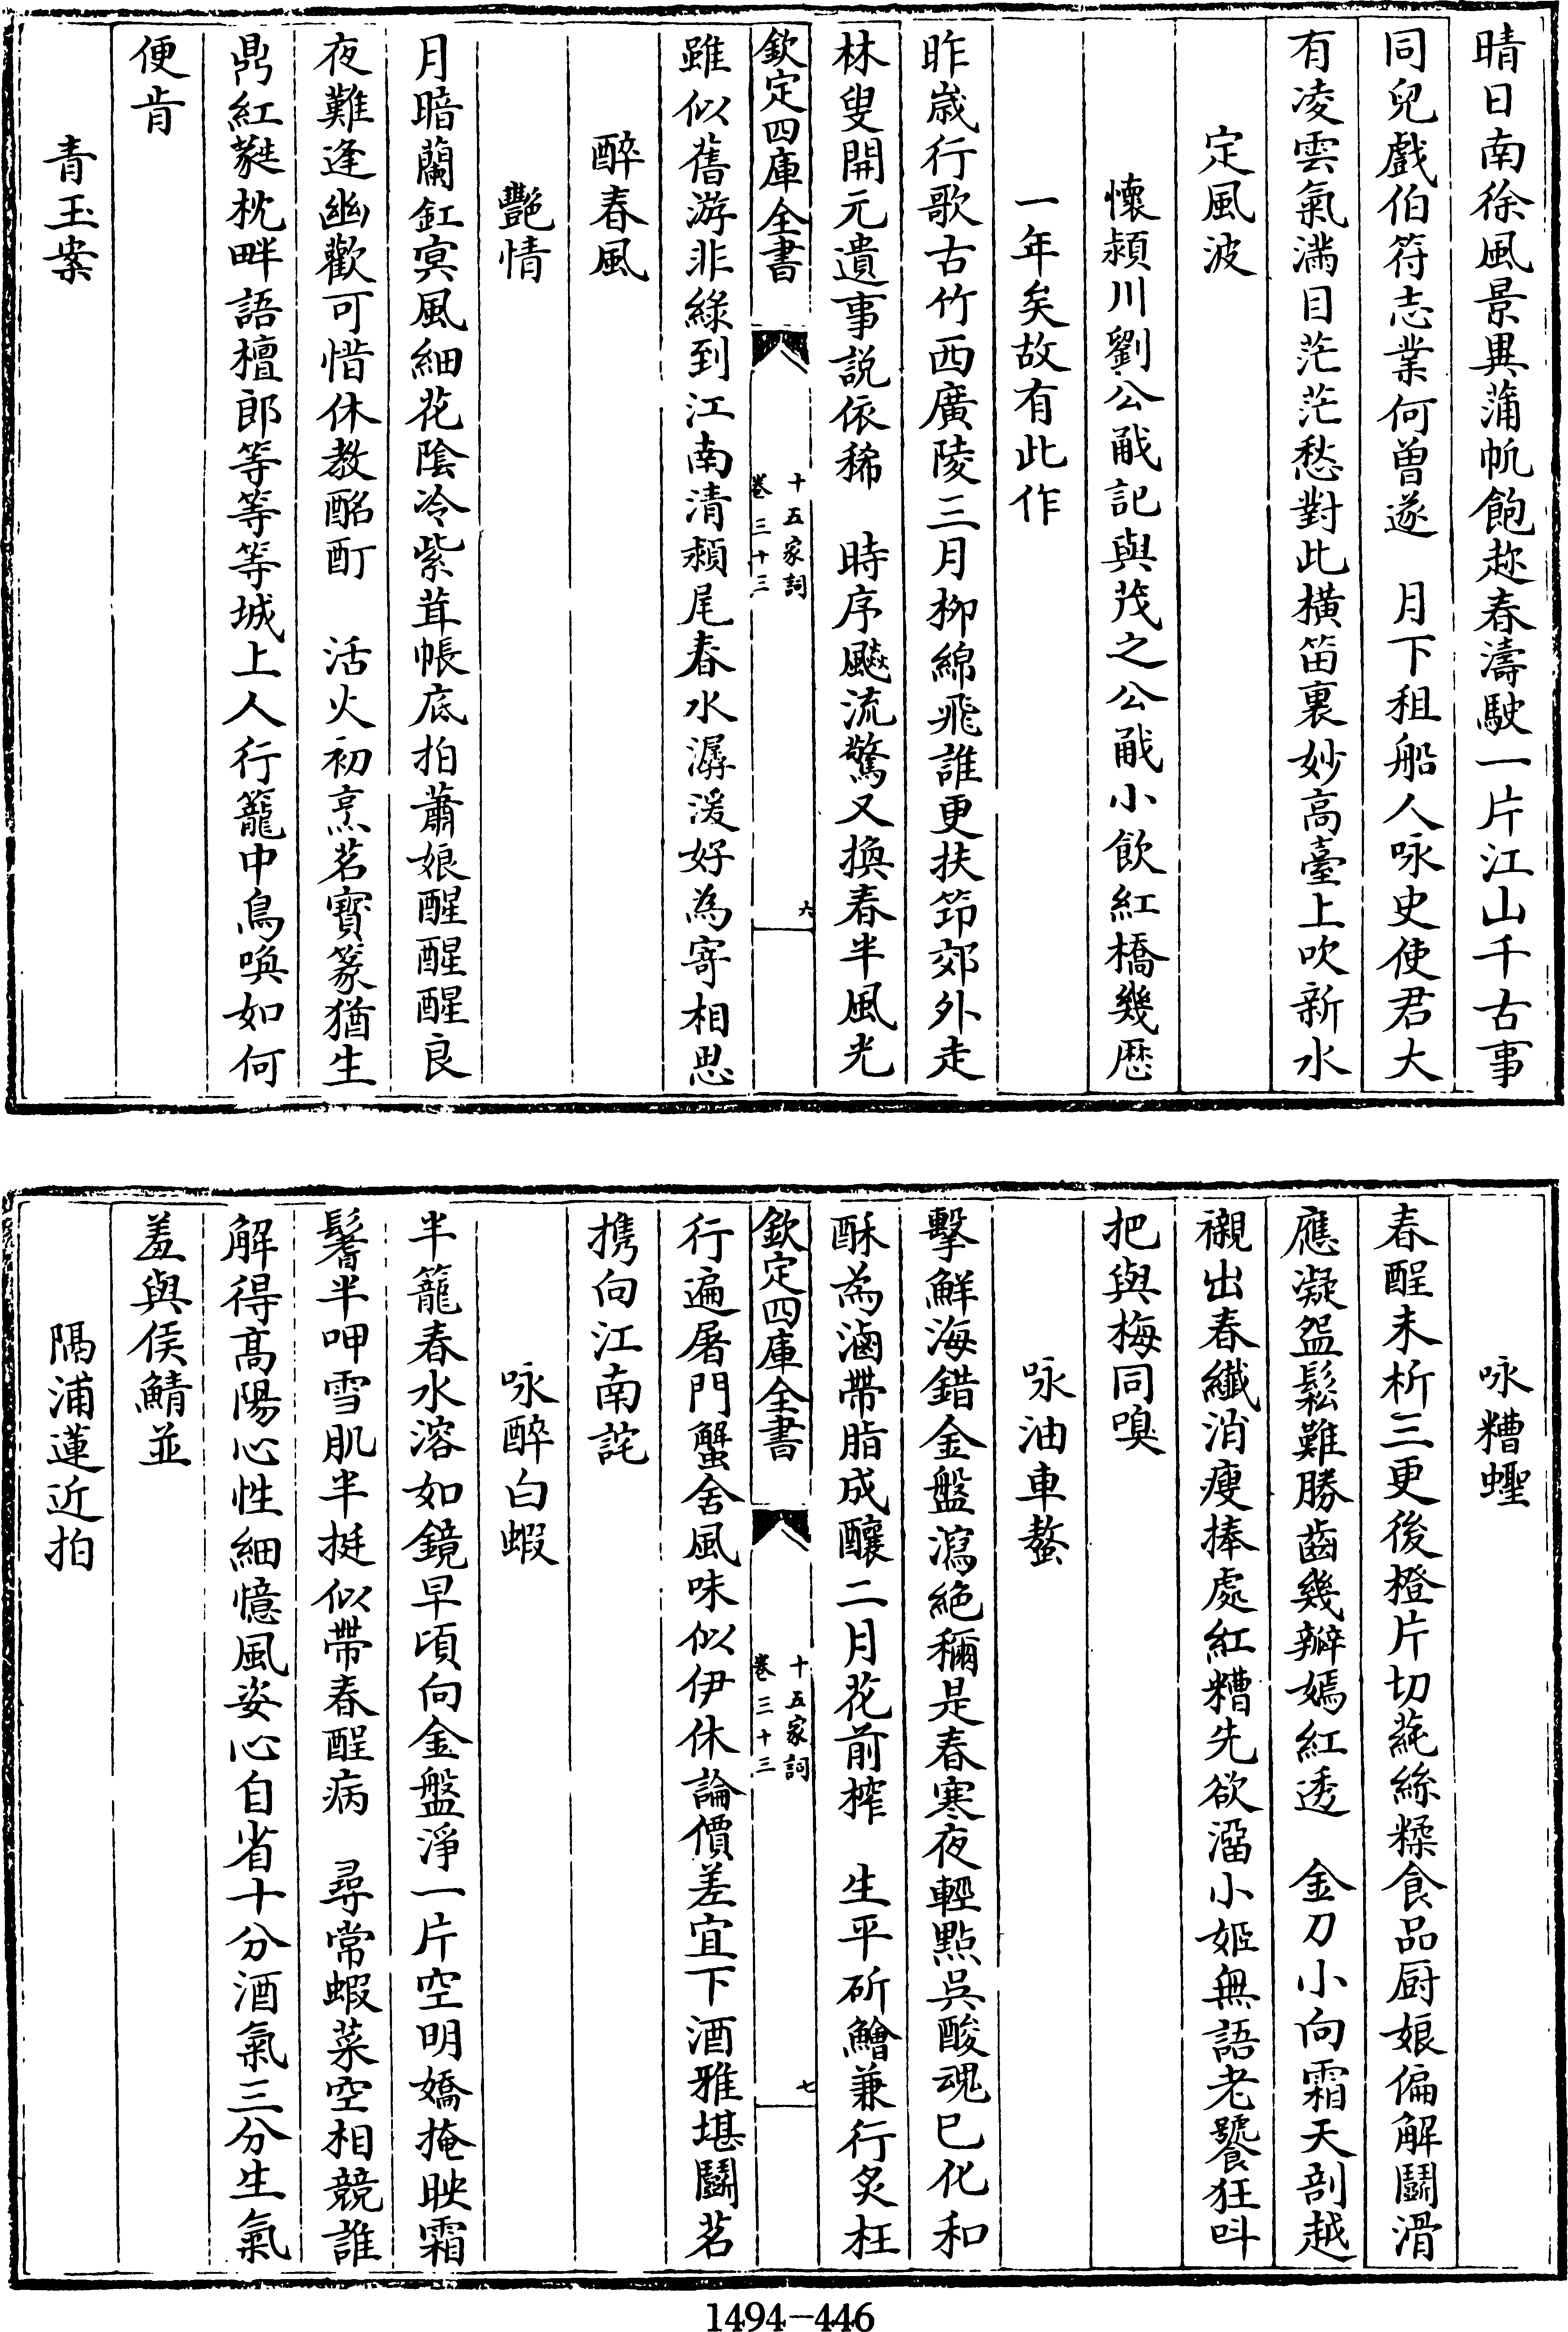 晴日南徐風景異蒲帆飽趂春濤駛一片江山千古事
同兒戲伯符志業何曾遂　月下租船人咏史使君大
有凌雲氣滿目茫茫愁對此橫笛裏妙高臺上吹新水
定風波
懷潁川劉公㦸記與茂之公㦸小飲紅橋幾歴
一年矣故有此作
昨歳行歌古竹西廣陵三月柳綿飛誰更扶笻郊外走
林叟開元遺事說依稀　時序飈流驚又換春半風光
欽定四庫全書
十五家詞
卷三十三
六
雖似舊游非綠到江南清潁尾春水潺湲好為寄相思
醉春風
艷情
月暗蘭釭㝠風細花陰冷紫茸帳底拍蕭娘醒醒醒良
夜難逢幽歡可惜休教酩酊　活火初烹茗寳篆猶生
鼎紅蕤枕畔語檀郎等等等城上人行籠中鳥喚如何
便肯
青玉案
咏糟蟶
春酲未析三更後橙片切蒓絲糅食品厨娘偏解鬭滑
應凝盌鬆難勝齒幾瓣嫣紅透　金刀小向霜天剖越
襯出春纖消瘦捧處紅糟先欲溜小姬無語老饕狂呌
把與梅同嗅
咏油車螯
擊鮮海錯金盤瀉絶稱是春寒夜輕點吳酸魂已化和
酥為滷帶脂成釀二月花前榨　生平斫鱠兼行炙枉
欽定四庫全書
十五家詞
卷三十三
七
行遍屠門蟹舍風味似伊休論價差宜下酒雅堪鬭茗
携向江南詫
咏醉白蝦
半籠春水溶如鏡早頃向金盤淨一片空明嬌掩映霜
鬐半呷雪肌半挺似帶春酲病　尋常蝦菜空相競誰
解得高陽心性細憶風姿心自省十分酒氣三分生氣
羞與侯鯖並
隔浦蓮近拍
1494-446